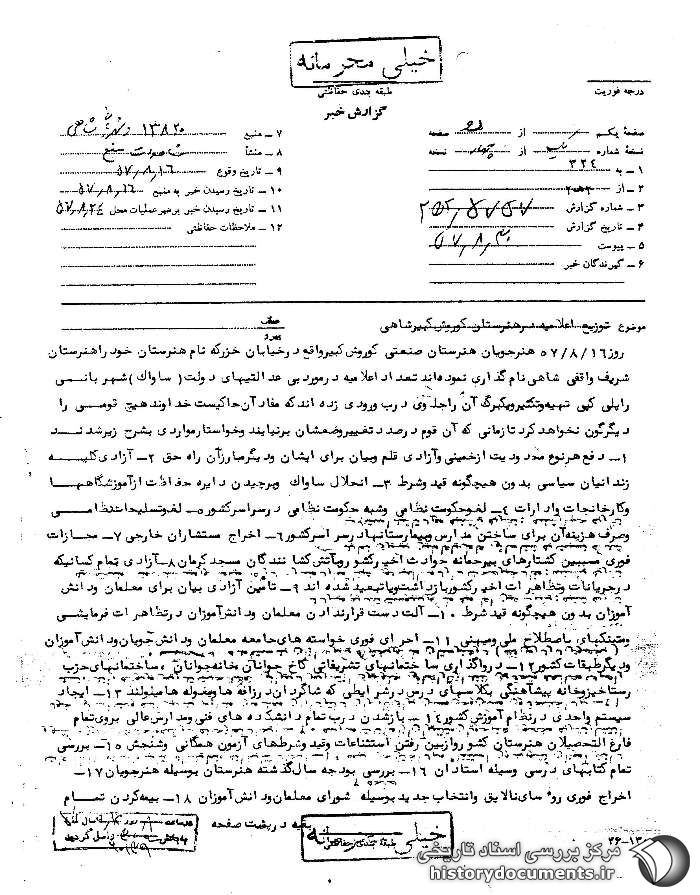 خیلی محرمانه
طبقه بندی حفاظتی
گزارش خبر
درجه فوریت
صفحه یکم از صفحه
نسخه شماره از نسخه
۱ - به ۳۲۴
۲ - از
۳ - شماره گزارش
۴ - تاریخ گزارش ۵۷٫۸٫۳۰
۵ - پیوست
۶ - گیرندگان خبر
۷ - منبع ۱۳۸۲۰
۸ - منشأ
۹ - تاریخ وقوع ۵۷٫۸٫۱۶
۱۰ - تاریخ رسیدن خبر به منبع ۵۷٫۸٫۱۶
۱۱ - تاریخ رسیدن خبر برهبر عملیات محل ۵۷٫۸٫۲۴
۱۲ - ملاحظات حفاظتی
موضوع توزیع اعلامیه در هنرستان کوروش کبیر شاهی
روز ۵۷/۸/۱۶ هنرجویان هنرستان صنعتی کوروش کبیر واقع در خیابان خزر که نام هنرستان خود را هنرستان
شریف واقفی شاهی نام گذاری نموده اند تعداد اعلامیه در مورد بی عدالتیهای دولت (ساواک) شهربانی
را پلی کپی تهیه و تکثیر ویکبرگ آن را جلوی درب ورودی زده اند که مفاد آن حاکیست خداوند هیچ قومی را
دیگرگون نخواهد کرد تا زمانی که آن قوم در صدد تغییر وضعشان برنیایند و خواستار مواردی بشرح زیر شدند
۱ـ دفع هر نوع محدودیت از خمینی و آزادی قلم و بیان برای ایشان و دیگر مبارزان راه حق ۲ـ آزادی کلیه
زندانیان سیاسی بدون هیچگونه قید و شرط ۳ـ انحلال ساواک و برچیدن دایره حفاظت از آموزشگاهها
و کارخانجات و ادارات ۴ـ لغو حکومت نظامی و شبه حکومت نظامی در سراسر کشور ۵ـ لغو تسلیحات نظامی
و صرف هزینه آن برای ساختن مدارس و بیمارستانها در سراسر کشور ۶ـ اخراج مستشاران خارجی ۷ـ مجازات
فوری مسببین کشتارهای بیرحمانه حوادث اخیر کشور و بآتش کشانندگان مسجد کرمان ۸ـ آزادی تمام کسانیکه
در جریانات و تظاهرات اخیر کشور بازداشت و یا تبعید شده اند ۹ـ تأمین آزادی بیان برای معلمان و دانش
آموزان بدون هیچگونه قید و شرط ۱۰ـ آلت دست قرار ندادن معلمان و دانش آموزان در تظاهرات فرمایشی
و میتینگهای باصطلاح ملی و میهنی ۱۱ـ اجرای فوری خواسته های جامعه معلمان و دانش جویان و دانش آموزان
و دیگر طبقات کشور ۱۲ـ در واگذاری ساختمانهای تشریفاتی کاخ جوانان خانه جوانان، ساختمانهای حزب
رستاخیز و خانه پیشاهنگی بکلاسهای درس در شرایطی که شاگردان در زاغه ها و بیغوله ها میلولند ۱۳ـ ایجاد
سیستم واحدی در نظام آموزش کشور ۱۴ـ باز شدن درب تمام دانشکده های فنی و مدارس عالی بروی تمام
فارغ التحصیلان هنرستان کشور و از بین رفتن استثناءات و قید و شرطهای آزمون همگانی و سنجش ۱۵ـ بررسی
تمام کتابهای درسی وسیله استادان ۱۶ـ بررسی بودجه سال گذشته هنرستان بوسیله هنرجویان ۱۷ـ
اخراج فوری روسای نالایق و انتخاب جدید بوسیله شورای معلمان و دانش آموزان ۱۸ـ بیمه کردن تمام
بقیه در پشت صفحه
خیلی محرمانه
طبقه بندی حفاظتی
مرکز بررسی اسناد تاریخی
historydocuments.ir